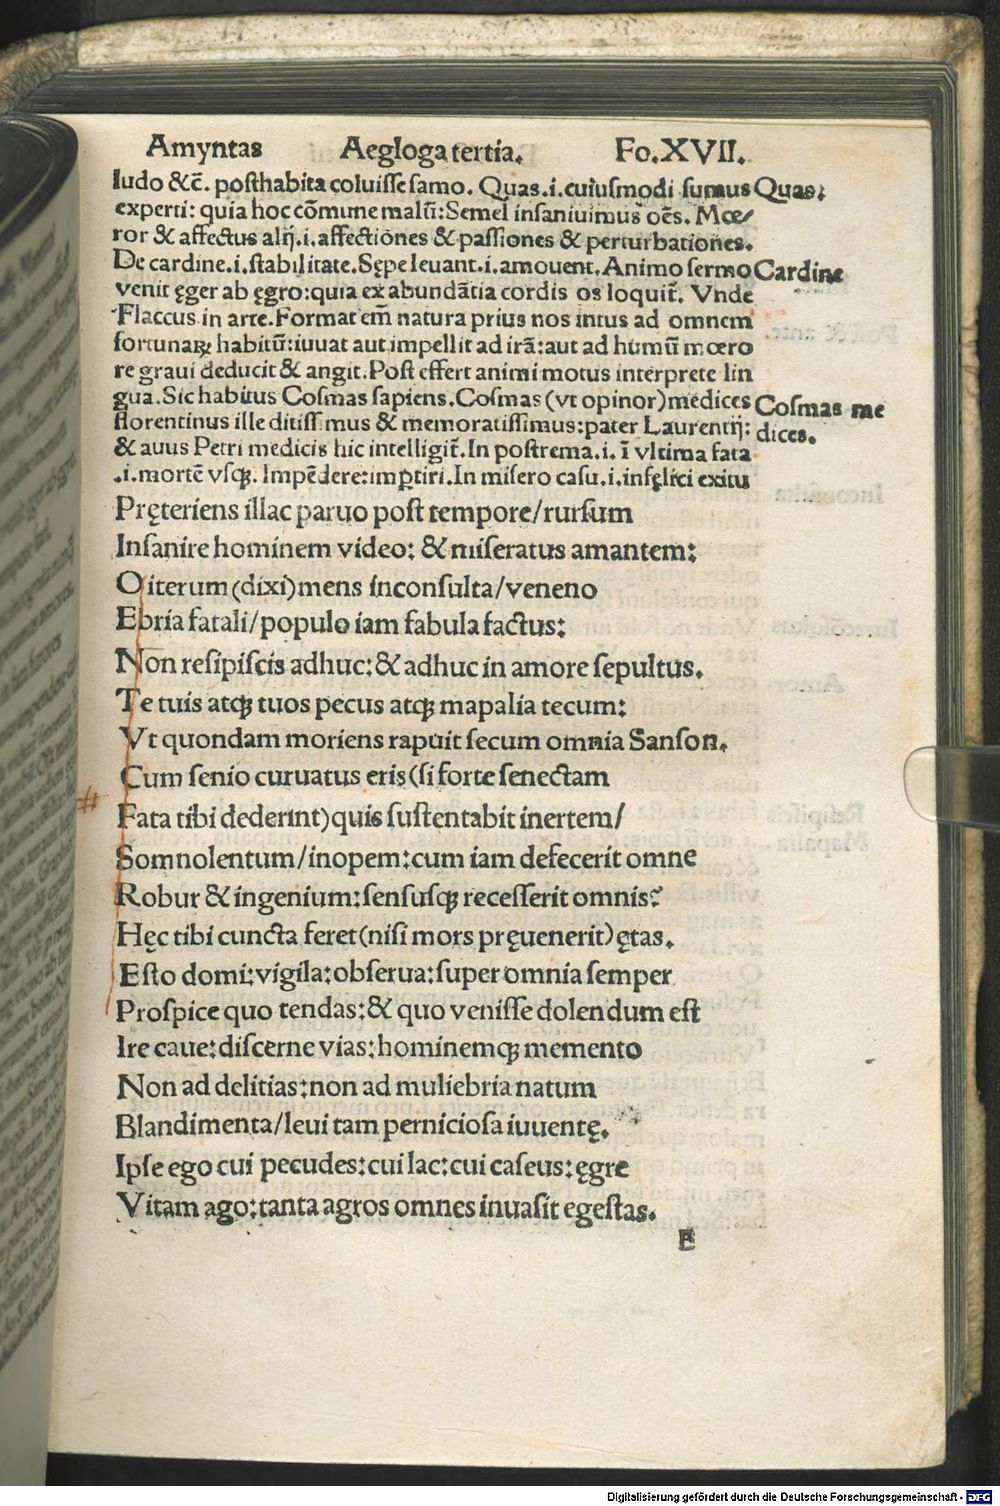 Amyntas Aegloga tertia. Fo.XVII.
ludo &c̄. posthabita coluisse samo. Quas.i.cuiusmodi sumus Quas:
experti: quia hoc cōmune malū: Semel insaniuimus oēs. Mœ/
ror & affectus alij.i.affectiones & passiones & perturbationes.
De cardine.i.stabilitate. Sępe leuant.i.amouent. Animo sermo Cardine
venit ęger ab ęgro: quia ex abundātia cordis os loquit̄. Vnde
Flaccus in arte. Format em̄ natura prius nos intus ad omnem
fortunaꝝ habitū: iuuat aut impellit ad irā: aut ad humū mœro
re graui deducit & angit. Post effert animi motus interprete lin
gua. Sic habitus Cosmas sapiens. Cosmas (vt opinor) medices Cosmas me
florentinus ille ditissimus & memoratissimus: pater Laurentij: dices.
& auus Petri medicis hic intelligit̄. In postrema.i. ī vltima fata
.i. mortē vsqꝫ. Impēdere: imꝑtiri. In misero casu.i. infęlici exitu
Pręteriens illac paruo post tempore/rursum
Insanire hominem video: & miseratus amantem:
O iterum (dixi) mens inconsulta/veneno
Ebria fatali/populo iam fabula factus:
Non resipiscis adhuc: & adhuc in amore sepultus.
Te tuis atqꝫ tuos pecus atqꝫ mapalia tecum:
Vt quondam moriens rapuit secum omnia Sanson.
Cum senio curuatus eris (si forte senectam
Fata tibi dederint) quis sustentabit inertem/
Somnolentum/inopem: cum iam defecerit omne
Robur & ingenium: sensusqꝫ recesserit omnis?
Hęc tibi cuncta feret (nisi mors pręuenerit) ętas.
Esto domi: vigila: obserua: super omnia semper
Prospice quo tendas: & quo venisse dolendum est
Ire caue: discerne vias: hominemqꝫ memento
Non ad delitias: non ad muliebria natum
Blandimenta/leui tam perniciosa iuuentę.
Ipse ego cui pecudes: cui lac: cui caseus: ęgre
Vitam ago: tanta agros omnes inuasit egestas.
E
Digitalisierung gefördert durch die Deutsche Forschungsgemeinschaft - DFG